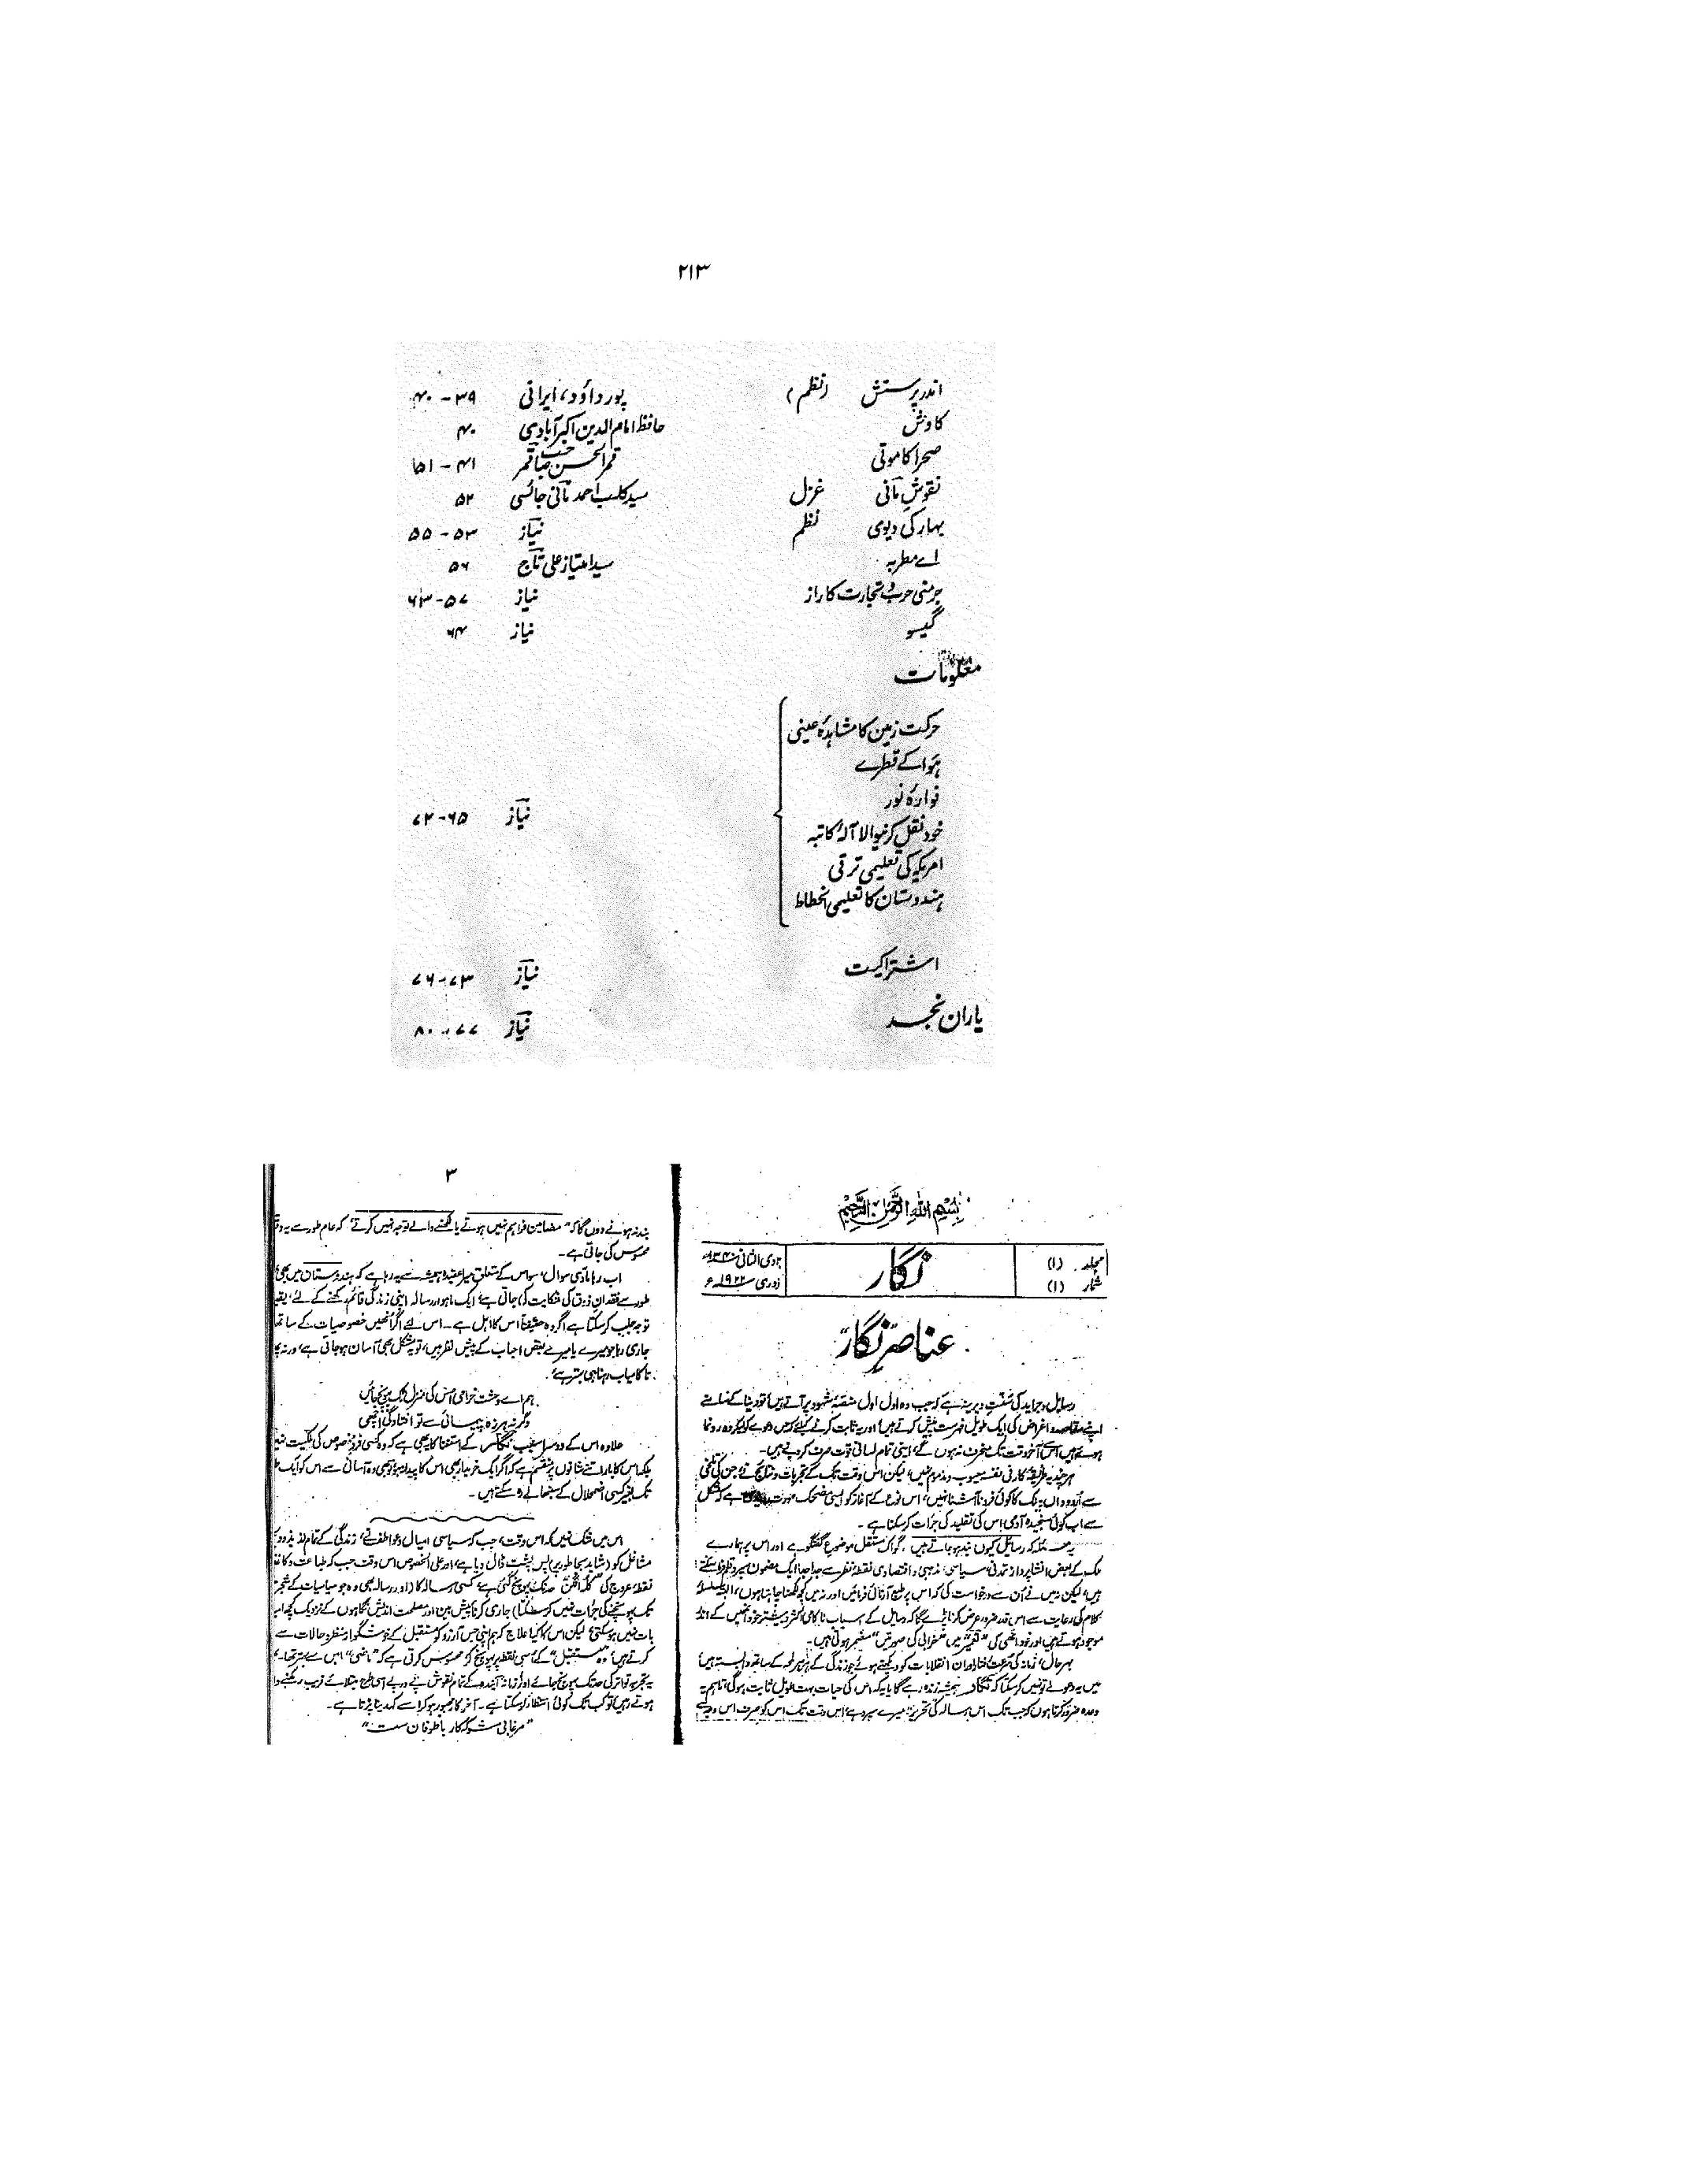 ۲۱۳
اندر پرستش (نظم) پور داؤد، ایرانی ۳۹ - ۴۰
کاوش حافظ امام الدین اکبرآبادی ۴۰
صحرا کا موتی قمر الحسن صاحب قمر ۴۱ - ۵۱
نقوشِ مانی غزل سید کلب احمد مانی جائسی ۵۲
بہار کی دیوی نظم نیاز ۵۳ - ۵۵
اے مطربہ سید امتیاز علی تاج ۵۶
جرمنی حرب و تجارت کا راز نیاز ۵۷-۶۳
گیسو نیاز ۶۴
معلومات
حرکت زمین کا مشاہدۂ عینی
ہوا کے قطرے
فوارۂ نور
خود نقل کرنیوالا آلۂ کاتبہ
امریکہ کی تعلیمی ترقی
ہندوستان کا تعلیمی انحطاط
نیاز ۶۵-۷۲
اشتراکیت نیاز ۷۳-۷۶
یاران نجد نیاز ۷۷-۸۰
بسم اللہ الرحمن الرحیم
مجلد (۱) نگار
شمار (۱) فروری ۱۹۲۲ء
عناصرِ نگار
رسایل و جراید کی سنت دیرینہ ہے کہ جب وہ اول اول منصۂ شہود پر آتے ہیں تو دنیا کے سامنے
اپنے مقاصد و اغراض کی ایک طویل فہرست پیش کرتے ہیں اور یہ ثابت کرنے کیلئے کہ جس دعوے کو لیکر وہ رونما
ہوئے ہیں اس سے آخر وقت تک منحرف نہ ہوں گے، اپنی تمام لسانی قوت صرف کر دیتے ہیں۔
ہر چند یہ طریقۂ کار فی نفسہ معیوب و مذموم نہیں، لیکن اس وقت تک کے تجربات و نتائج نے، جن کی تلخی
سے اُردو داں پبلک کا کوئی فرد نا آشنا نہیں، اس نوع کے آغاز کو ایسی مضحک صورت ہے کہ مشکل
سے اب کوئی سنجیدہ آدمی اس کی تقلید کی جرأت کر سکتا ہے۔
یہ مسئلہ کہ رسائل کیوں بند ہو جاتے ہیں، گو اک مستقل موضوع گفتگو ہے اور اس پر ہمارے
ملک کے بعض انشا پرداز تمدنی، سیاسی، مذہبی و اقتصادی نقطۂ نظر سے جدا جدا ایک مضمون سپرد قلم فرما سکتے
ہیں، لیکن نہ میں نے اُن سے درخواست کی کہ اس پر طبع آزمائی فرمائیں اور نہ میں کچھ لکھنا چاہتا ہوں، البتہ سلسلۂ
کلام کی رعایت سے اس قدر ضرور عرض کرنا پڑے گا کہ رسایل کے اسباب ناکامی اکثر و بیشتر خود انہیں کے اندر
موجود ہوتے ہیں اور خود انھی کی "تعمیر" میں "خرابی کی صورتیں" مضمر ہوتی ہیں۔
بہر حال، زمانہ کی سُرعت رفتار اور ان انقلابات کو دیکھتے ہوئے جو زندگی کے ہر ہر لمحہ کے ساتھ وابستہ ہیں
میں یہ دعوے تو نہیں کر سکتا کہ نگار ہمیشہ زندہ رہے گا یا یہ کہ اس کی حیات بہت طویل ثابت ہوگی، تاہم یہ
وعدہ ضرور کرتا ہوں کہ جب تک اس رسالہ کی تحریر میرے سپرد ہے، اس وقت تک اس کو صرف اس وجہ سے
۳
بند نہ ہونے دوں گا کہ "مضامین فراہم نہیں ہوتے یا لکھنے والے توجہ نہیں کرتے" کہ عام طور سے یہ
محسوس کی جاتی ہے۔
اب رہا مادّی سوال، سو اس کے متعلق میرا عقیدہ ہمیشہ سے یہ رہا ہے کہ ہندوستان میں بھی
طور سے فقدان ذوق کی شکایت کی جاتی ہے، ایک ماہوار رسالہ اپنی زندگی قائم رکھنے کے لئے
توجہ جلب کر سکتا ہے اگر وہ حقیقتاً اس کا اہل ہے۔ اس لئے اگر اُنھیں خصوصیات کے ساتھ
جاری رہا جو میرے یا میرے بعض احباب کے پیش نظر ہیں، تو یہ مشکل بھی آسان ہو جاتی ہے، ورنہ
ناکامیاب رہنا ہی بہتر ہے۔
ہم اے وحشت خرامی اُس کی منزل تک پہونچ جائیں
وگرنہ ہرزہ پیمائی سے تو افتادگی اچھی
علاوہ اس کے دوسرا سبب نگار کے استغنا کا یہ بھی ہے کہ وہ کسی فرد مخصوص کی ملکیت نہیں
بلکہ اس کا بار اتنے شانوں پر منقسم ہے کہ اگر ایک خریدار بھی اس کا پیدا نہ ہو تو بھی وہ آسانی سے اس کو ایک
تک بغیر کسی اضمحلال کے سنبھالے رہ سکتے ہیں۔
اس میں شک نہیں کہ اس وقت، جب کہ سیاسی امیال و عواطف نے، زندگی کے تمام لذیذ و
مشاغل کو (شاید بجا طور پر) پس پشت ڈال دیا ہے، اور علی الخصوص اس وقت جب کہ طباعت و کاغذ
نقطۂ عروج کی حد تک پہونچ گئی ہے، کسی رسالہ کا (اور رسالہ بھی وہ جو سیاسیات کے شجر
تک پہونچنے کی جرأت نہیں کر سکتا) جاری کرنا پیش بین اور مصلحت اندیش نگاہوں کے نزدیک کچھ
بات نہیں ہو سکتی، لیکن اس کا کیا علاج کہ ہم اپنی جس آرزو کو مستقبل کے خوشگوار منظر و حالات سے
کرتے ہیں، وہ "مستقبل" کے اُسی نقطہ پر پہونچ کر محسوس کرتی ہے کہ "ماضی" اس سے بہتر تھا۔
یہ تجربہ تواتر کی حد تک پہونچ جائے اور زمانہ آیندہ کے تمام نقوش پے در پے اسی طرح مبتلائے فریب رکھنے
ہوتے رہیں تو کب تک کوئی انتظار کر سکتا ہے۔ آخر کار مجبور ہو کر اسے کہہ دینا پڑتا ہے۔